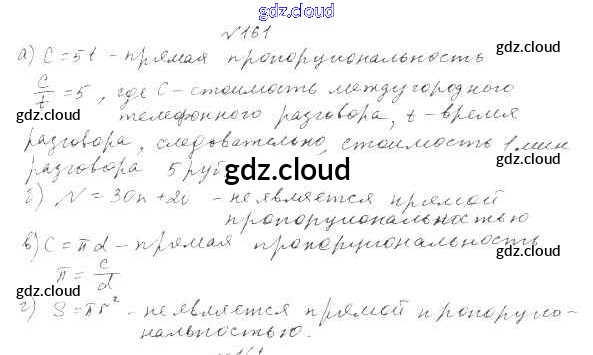 gdz.cloud
№161
а) C = 5t - прямая пропорциональность
gdz.cloud
C/t = 5, где C - стоимость междугородного
gdz.cloud
телефонного разговора, t - время
gdz.cloud
разговора, следовательно, стоимость 1 мин
разговора 5 руб
gdz.cloud
б) N = 30n + 20 - не является прямой
пропорциональностью
в) C = πd - прямая пропорциональность
gdz.cloud
π = C/d
gdz.cloud
г) S = πr² - не является прямой пропорцио-
нальностью.
gdz.cloud